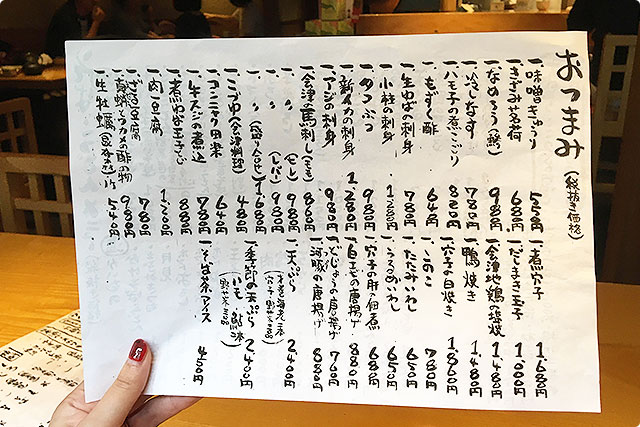 おつまみ(税抜き価格)
一、味噌きゅうり 550円
一、きざみ茗荷 680円
一、なめろう(鯵) 980円
一、冷しなす 780円
一、ハモ子の煮こごり 820円
一、もずく酢 640円
一、生ゆばの刺身 780円
一、小柱の刺身 1.380円
一、タコぶつ 980円
一、新イカの刺身 1.280円
一、アジの刺身 980円
一、会津の馬刺し(モモ) 860円
一、〃 (ヒレ) 980円
一、〃 (レバー) 980円
一、〃 (盛り合せ) 1.680円
一、こづゆ(会津料理) 640円
一、コンニャク田楽 480円
一、牛スジの煮込 780円
一、煮穴子玉子とじ 880円
一、肉豆腐 1.200円
一、ざる豆腐 780円
一、真蛸とワカメの酢の物 980円
一、生牡蠣 540円
一、煮穴子 1.680円
一、だしまき玉子 1.000円
一、会津地鶏の塩焼 1.480円
一、鴨焼き 1.480円
一、穴子の白焼き 1.860円
一、このこ 780円
一、たたみいわし 650円
一、うるめいわし 650円
一、穴子の肝の佃煮 680円
一、白エビの唐揚げ 880円
一、どじょうの唐揚げ 760円
一、河豚の唐揚げ 880円
一、天ぷら 2.400円
一、季節の天ぷら 2.400円
一、そば茶アイス 450円